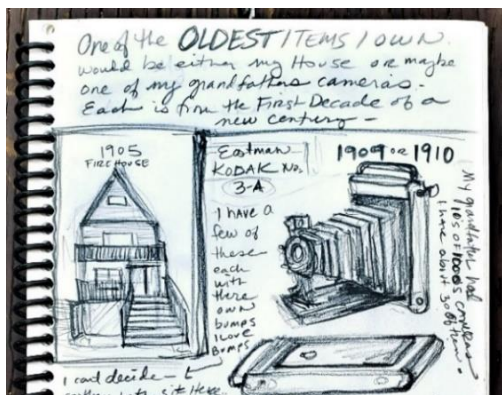 One of the OLDEST ITEMS I OWN.
would be either my House or maybe
one of my grandfathers cameras.
Each is from the First Decade of a
new century -
1905
FIREHOUSE
Eastman
KODAK No.
3-A
I have a
few of
these
each
with
there
own
bumps
I Love
Bumps
1909 or 1910
My grandfather had
of 1000s cameras
I have about 30 of them.
I cant decide -